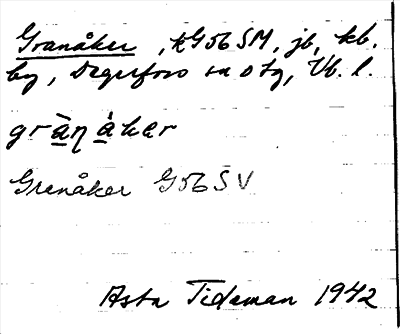 Granåker, KG56 SM, jb, kb.
by, Degerfors sn o tg, Vb. l.
grànåker
Grenåker G56 SV
Asta Tideman 1942